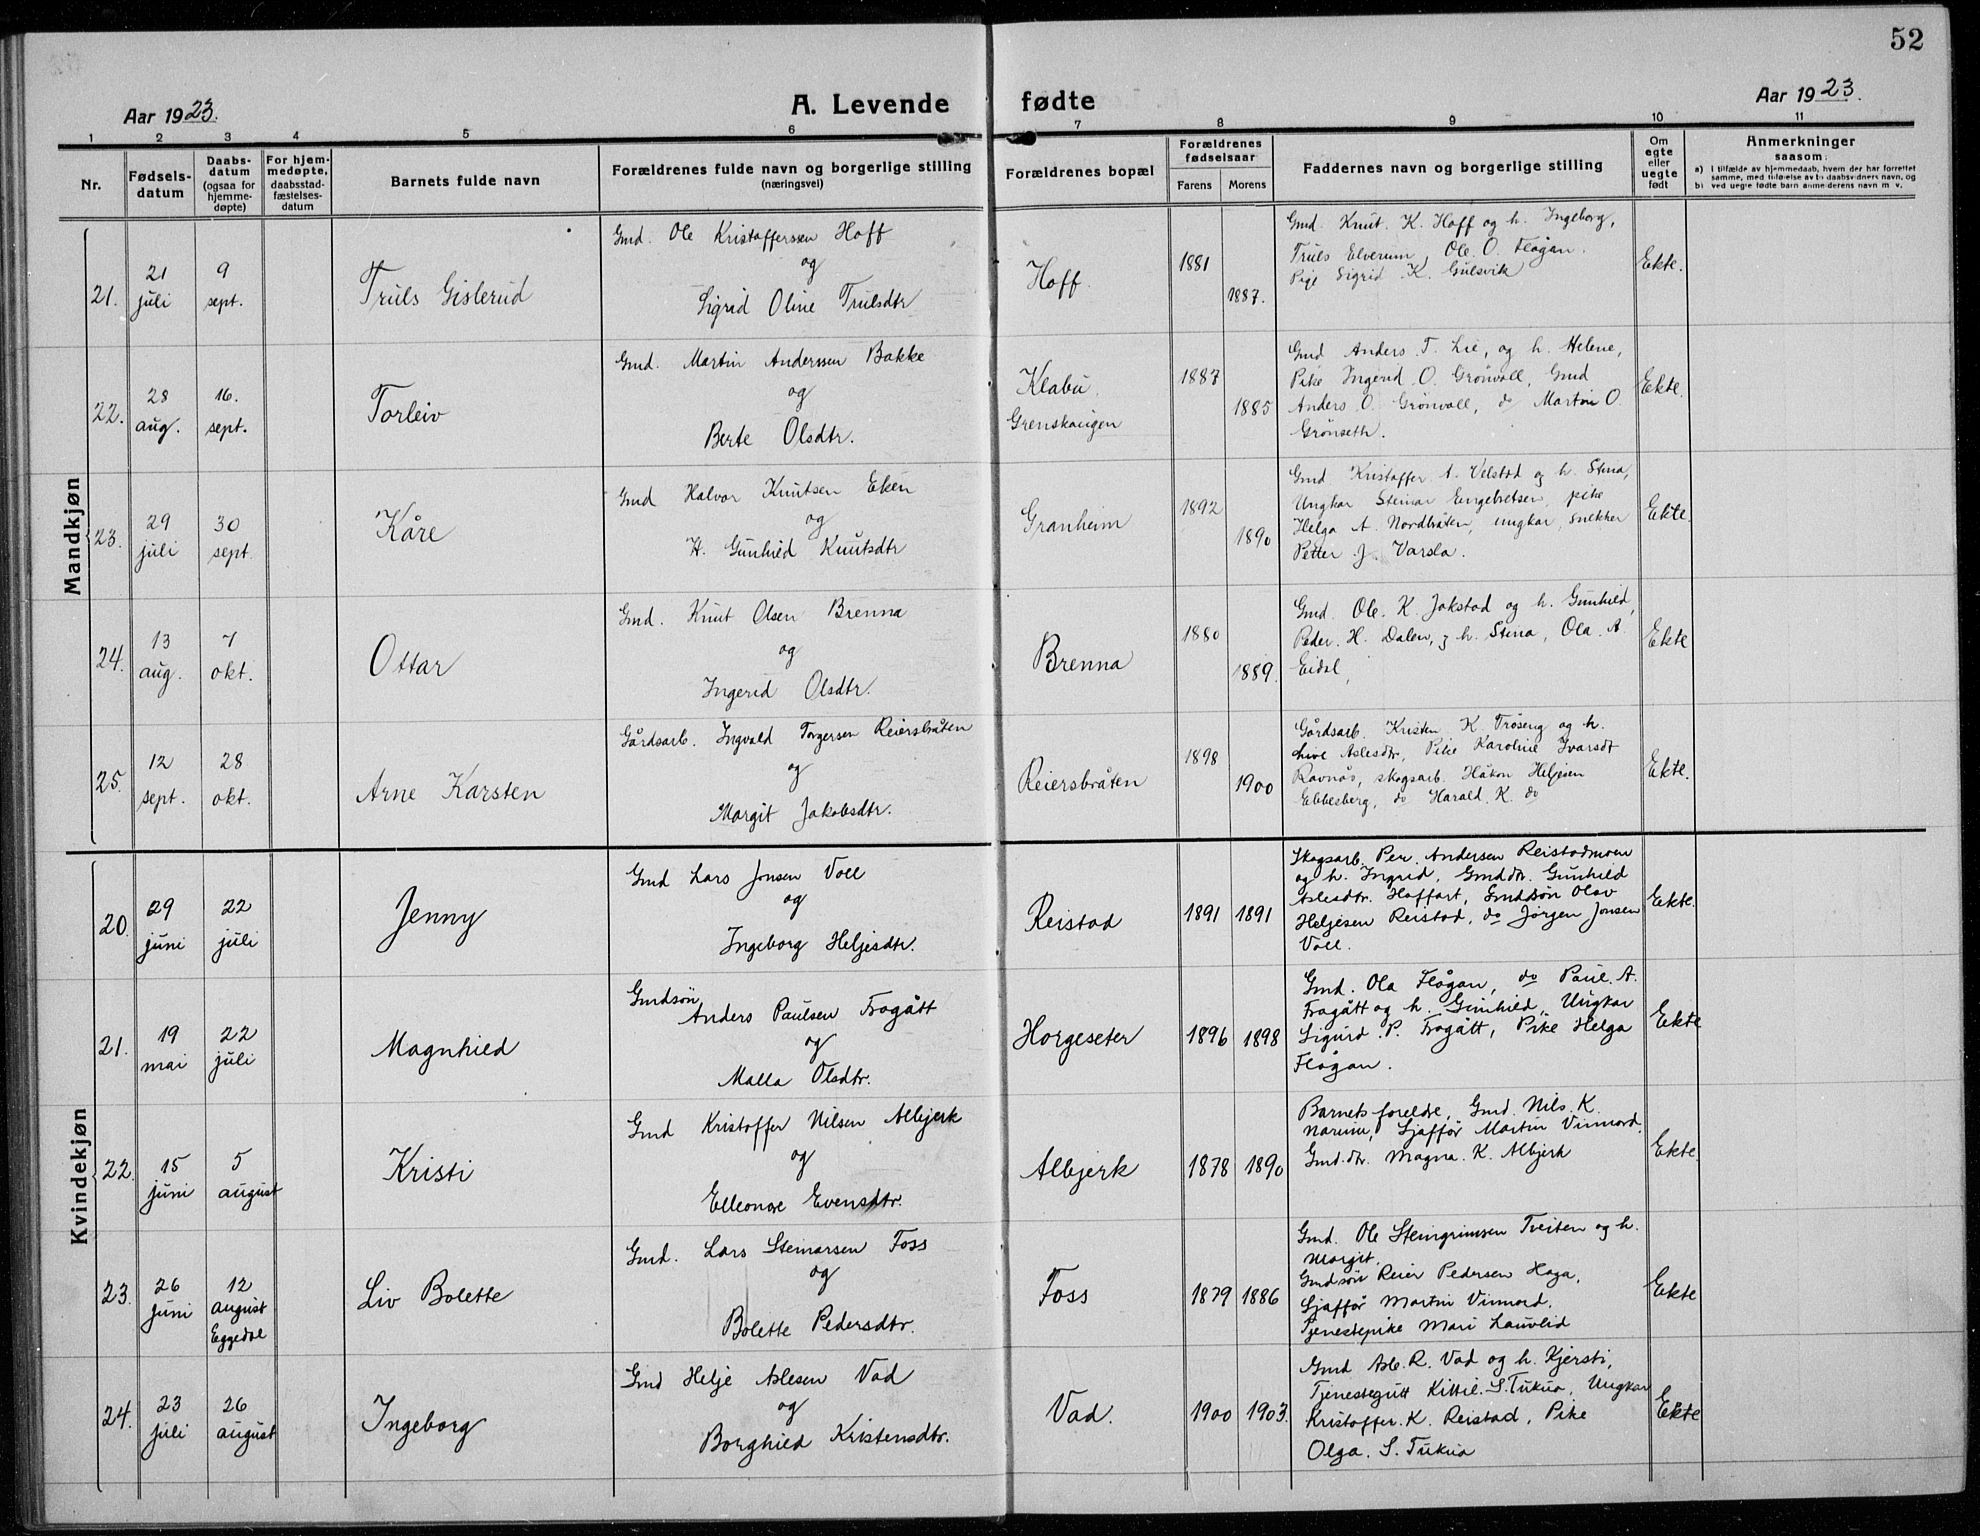 52
Aar 1923.
A. Levende fødte
Aar 1923.
1 2 3 4 5 6 7 8 9 10 11
Nr.
Fødsels-
datum
Daabs-
datum
(ogsaa for
hjemme-
døpte)
For hjem-
medøpte,
daabsstad-
fæstelses-
datum
Barnets fulde navn
Forældrenes fulde navn og borgerlige stilling
(næringsvei)
Forældrenes bopæl
Forældrenes
fødselsaar
Farens
Morens
Faddernes navn og borgerlige stilling
Om
egte
eller
uegte
født
Anmerkninger
saasom:
a) i tilfælde av hjemmedaab, hvem der har forrettet
samme, med tilføielse av to daabsvidners navn, og
b) ved uegte fødte barn anmelderens navn m. v.
Mandkjøn
21.
21
juli
9
sept.
Truls Gislerud
Gmd. Ole Kristoffersen Hoff
og
Sigrid Oline Trulsdtr
Hoff.
1881
1887.
Gmd. Knut. K. Hoff og h. Ingeborg,
Truls Elverum, Ole. O. Flågan.
Pige Sigrid K. Gulsvik
Ekte.
22.
28
aug.
16.
sept.
Torleiv
Gmd. Martin Anderssen Bakke
og
Berte Olsdtr.
Klabu
Grenskaugen
1887
1885
Gmd Anders T. Lie, og h. Helene,
Pike Ingerid O. Grønvoll, Gmd
Anders O. Grønvoll, do Martin O.
Grønseth.
Ekte.
23.
29
juli
30
sept.
Kåre
Gmd Halvor Knutsen Eken
og
H. Gunhild Knutsdtr
Granheim
1892
1890
Gmd Kristoffer A. Velstad og h. Stina,
Ungkar Steinar Engebretsen, pike
Helga A. Nordbråten, ungkar, snekker
Petter J. Varsla.
Ekte.
24.
13
aug.
7
okt.
Ottar
Gmd. Knut Olsen Brenna
og
Ingerid Olsdtr.
Brenna
1880
1889.
Gmd. Ole. K. Jokstad og h. Gunhild,
Peder. H. Dalen, og h. Stina, Ola. A.
Eidal,
Ekte
25.
12
sept.
28
okt.
Arne Karsten
Gårdsarb. Ingvald Torgersen Reiersbråten
og
Margit Jakobsdtr.
Reiersbråten
1898
1900
Gårdsarb. Kristen K. Trøseng og h.
Live Aslesdtr, Pike Karoline Ivarsdt
Ravnås, skogsarb. Håkon Heljesen
Ebbesberg, do Harald. K. do
Ekte.
Kvindekjøn
20.
29
juni
22
juli
Jenny
Gmd Lars Jonsen Voll
og
Ingeborg Heljesdtr.
Reistad
1891 1891
Skogsarb. Per. Andersen Reistadmoen
og h. Ingrid, Gmd.dtr. Gunhild
Aslesdtr. Hoffart, Gmdsøn Olav
Heljesen Reistad, do Jørgen Jonsen
Voll.
Ekte.
21.
19
mai
22
juli
Magnhild
Gmdsøn
Anders Paulsen Frøgått
og
Malla Olsdtr.
Horgeseter
1896 1898
Gmd. Ola Flågan, do Paul. A.
Frogått og h. Gunhild, Ungkar
Sigurd. P. Frogått, Pike Helga
Flågan.
Ekte
22.
15
juni
5
august
Kristi
Gmd Kristoffer Nilsen Albjerk
og
Elleonore Evensdtr.
Albjerk
1878 1890
Barnets foreldre, Gmd. Nils. K.
Narum, Sjaffør Martin Vinnord.
Gmd.dtr. Magna. K. Albjerk
Ekte.
23.
26
juni
12
august
Eggedal
Liv Bolette
Gmd. Lars Steinarsen Foss
og
Bolette Pedersdtr.
Foss
1879 1886
Gmd. Ole Steingrimsen Tveiten og h.
Margit.
Gmdsøn Reier Pedersen Haga,
Sjaffør Martin Vinnord.
Tjenestepike Mari Lauvlid
Ekte
24.
23
juli
26
august
Ingeborg
Gmd Helje Aslesen Vad
og
Borghild Kristensdtr.
Vad.
1900 1903.
Gmd Asle. R. Vad og h. Kjersti,
Tjenestegutt Kittil. S. Tukua, Ungkar
Kristoffer. K. Reistad, Pike
Olga. S. Tukua
Ekte